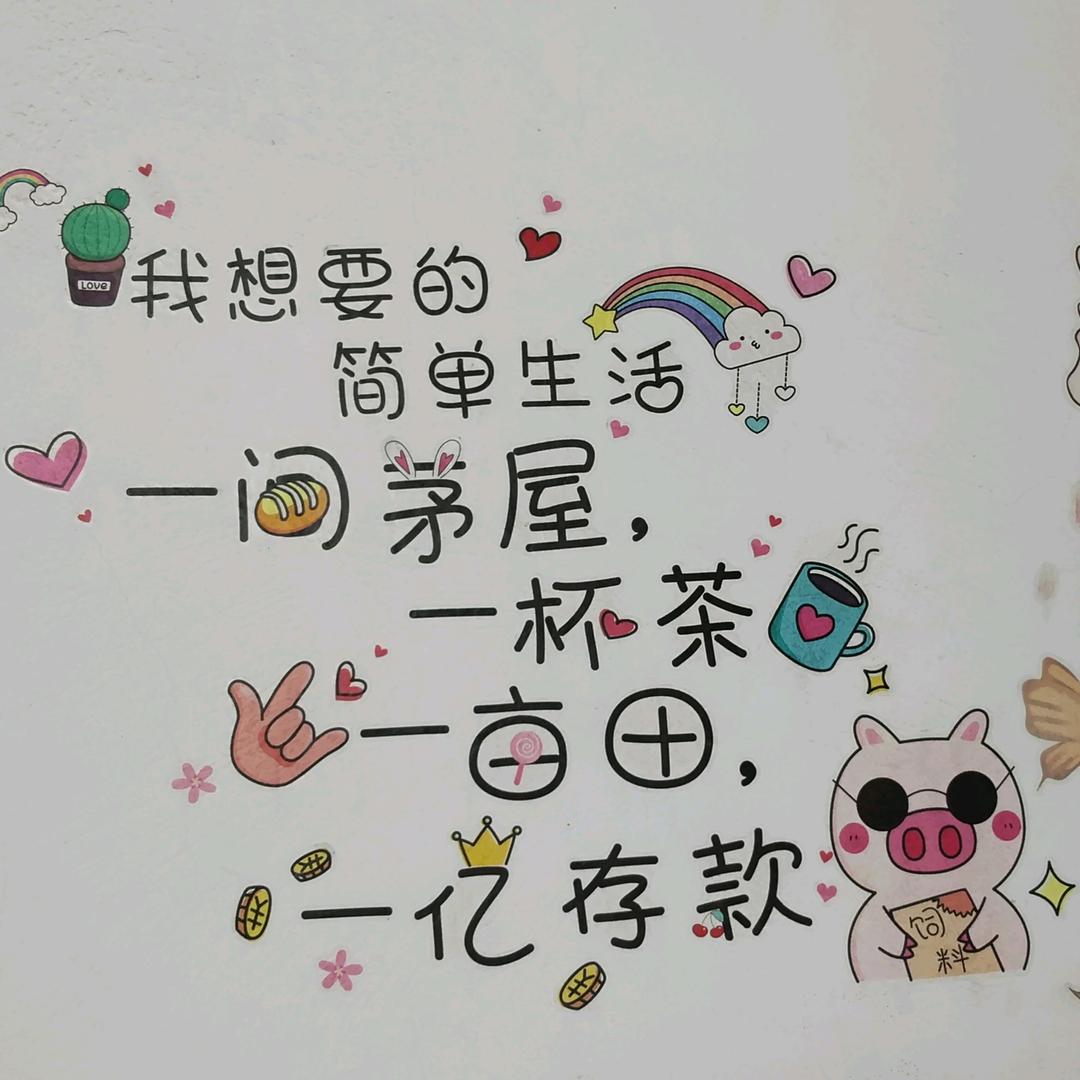 LOVE
我想要的
简单生活
一间茅屋，
一杯茶
一亩田，
一亿存款
饲
料